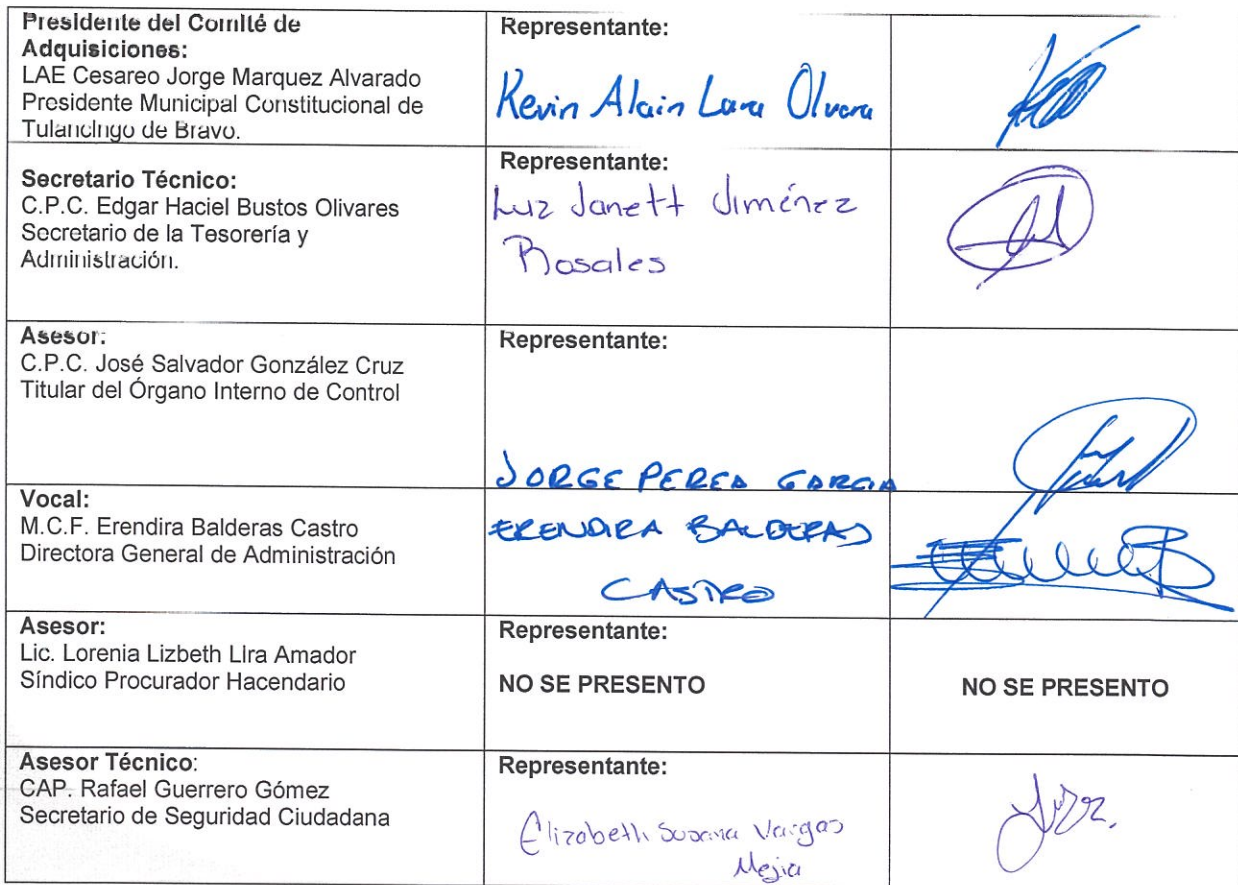 Presidente del Comité de
Adquisiciones:
LAE Cesareo Jorge Marquez Alvarado
Presidente Municipal Constitucional de
Tulancingo de Bravo.
Representante:
Kevin Alain Lara Olvera
Secretario Técnico:
C.P.C. Edgar Haciel Bustos Olivares
Secretario de la Tesorería y
Administración.
Representante:
Luz Janett Jiménez
Rosales
Asesor:
C.P.C. José Salvador González Cruz
Titular del Órgano Interno de Control
Representante:
JORGE PEREA GARCIA
Vocal:
M.C.F. Erendira Balderas Castro
Directora General de Administración
ERENDIRA BALDERAS
CASTRO
Asesor:
Lic. Lorenia Lizbeth Lira Amador
Síndico Procurador Hacendario
Representante:
NO SE PRESENTO
NO SE PRESENTO
Asesor Técnico:
CAP. Rafael Guerrero Gómez
Secretario de Seguridad Ciudadana
Representante:
Elizabeth Susana Vargas
Mejia